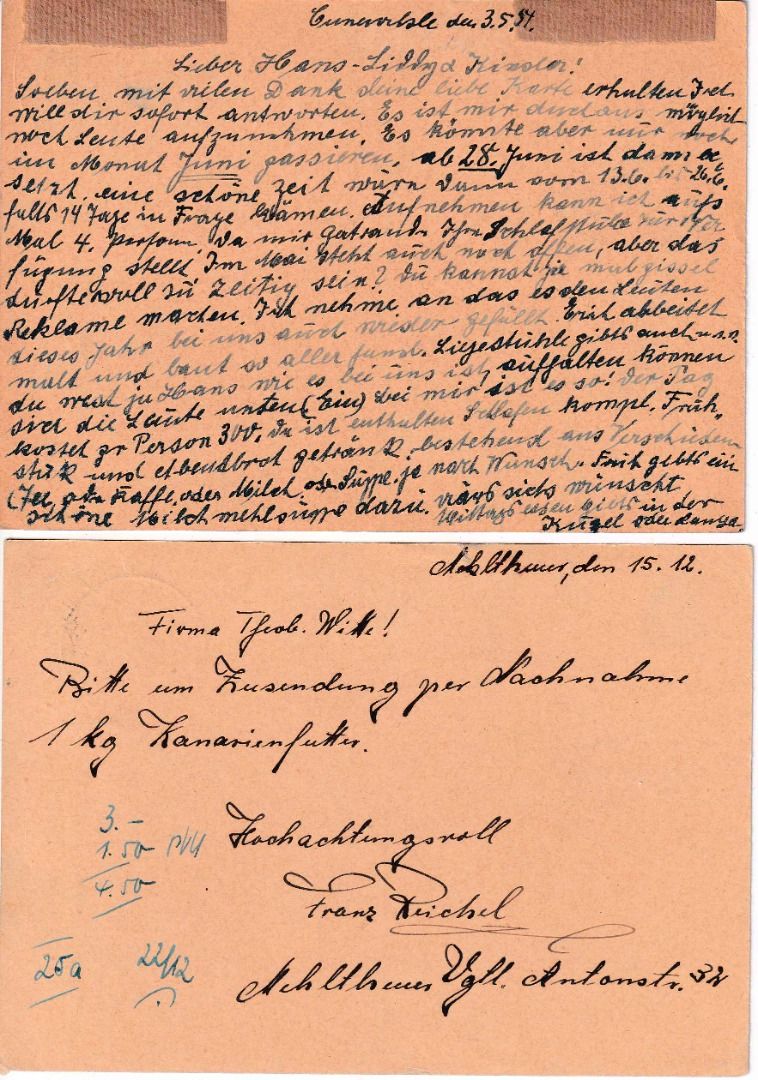 den 3.5.54.
Lieber Hans-Liddy & Kinder!
Soeben mit vielen Dank deine liebe Karte erhalten
will dir sofort antworten. Es ist mir durchaus möglich
noch Leute aufzunehmen. Es könnte aber nur noch
im Monat Juni passieren, ab 28. Juni ist dann be
setzt. eine schöne Zeit wärn dann vom 13.6. bis 26.6.
falls 14 Tage in Frage kämen. Aufnehmen kann ich aufs
Mal 4. Person. da mir Schlafstube zur Ver
fügung stellt. Im Mai steht auch noch offen, aber das
dürfte woll zu zeitig sein? Du kannst ja
Reklame machen. Ich nehme an das es den Leuten
dieses Jahr bei uns auch wieder gefällt. Erich arbeitet
malt und baut so aller hand. Liegestühle gibts auch u.s.w.
du west ja Hans wie es bei uns ist, aufhalten können
sich die Leute unten bei mir ist es so: der Tag
kostet pr Person 300. da ist enthalten Schlafen kompl. Früh-
stük und Abendbrot getränk. bestehend aus
(Tee, oder Kaffe, oder Milch oder Suppe. je nach Wunsch. Früh gibts ein
schöne Milch mehlsuppe dazu. wünscht
Mittags essen gibts in der
Kugel oder
Mehltheuer, den 15. 12.
Firma Theob. Witte!
Bitte um Zusendung per Nachnahme
1 kg Kanarienfutter.
3.-
1.50
4.50
Hochachtungsvoll
Franz Reichel
25a 22/12
Mehltheuer Vgtl. Antonstr. 32